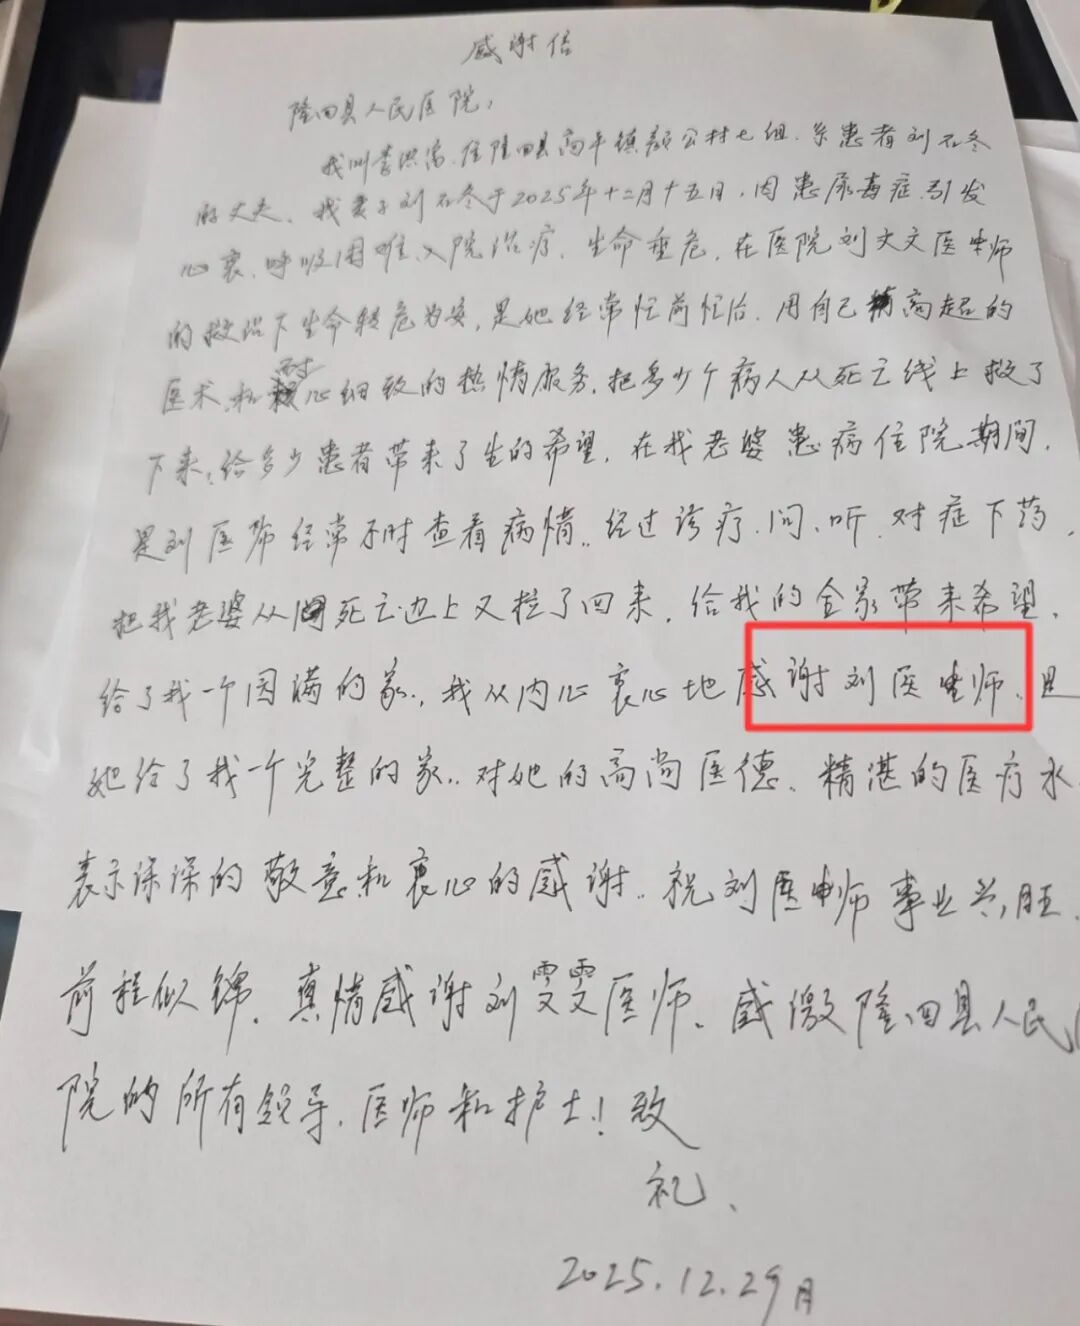 感谢信
隆回县人民医院，
我叫洪高.住隆回县高平镇颜公村七组.系患者刘石冬
的丈夫、我妻子刘石冬于2025年十二月十五日.因患尿毒症.引发
心衰.呼吸困难.入院治疗.生命垂危.在医院刘文文医师
的救治下生命转危为安.是她经常忙前忙后.用自己精高超的
医术.和耐心细致的热情服务.把多少个病人从死亡线上救了
下来.给多少患者带来了生的希望.在我老婆患病住院期间.
是刘医师经常不时查看病情..经过诊疗.问.听.对症下药.
把我老婆从死亡边上又拉了回来.给我的全家带来希望.
给了我一个园满的家..我从内心衷心地感谢刘医师.是
她给了我一个完整的家..对她的高尚医德.精湛的医疗水
表示深深的敬意和衷心的感谢..祝刘医师事业兴旺.
前程似锦.真情感谢刘雯雯医师.感激隆回县人民
院的所有领导.医师和护士!致
礼.
2025.12.29日